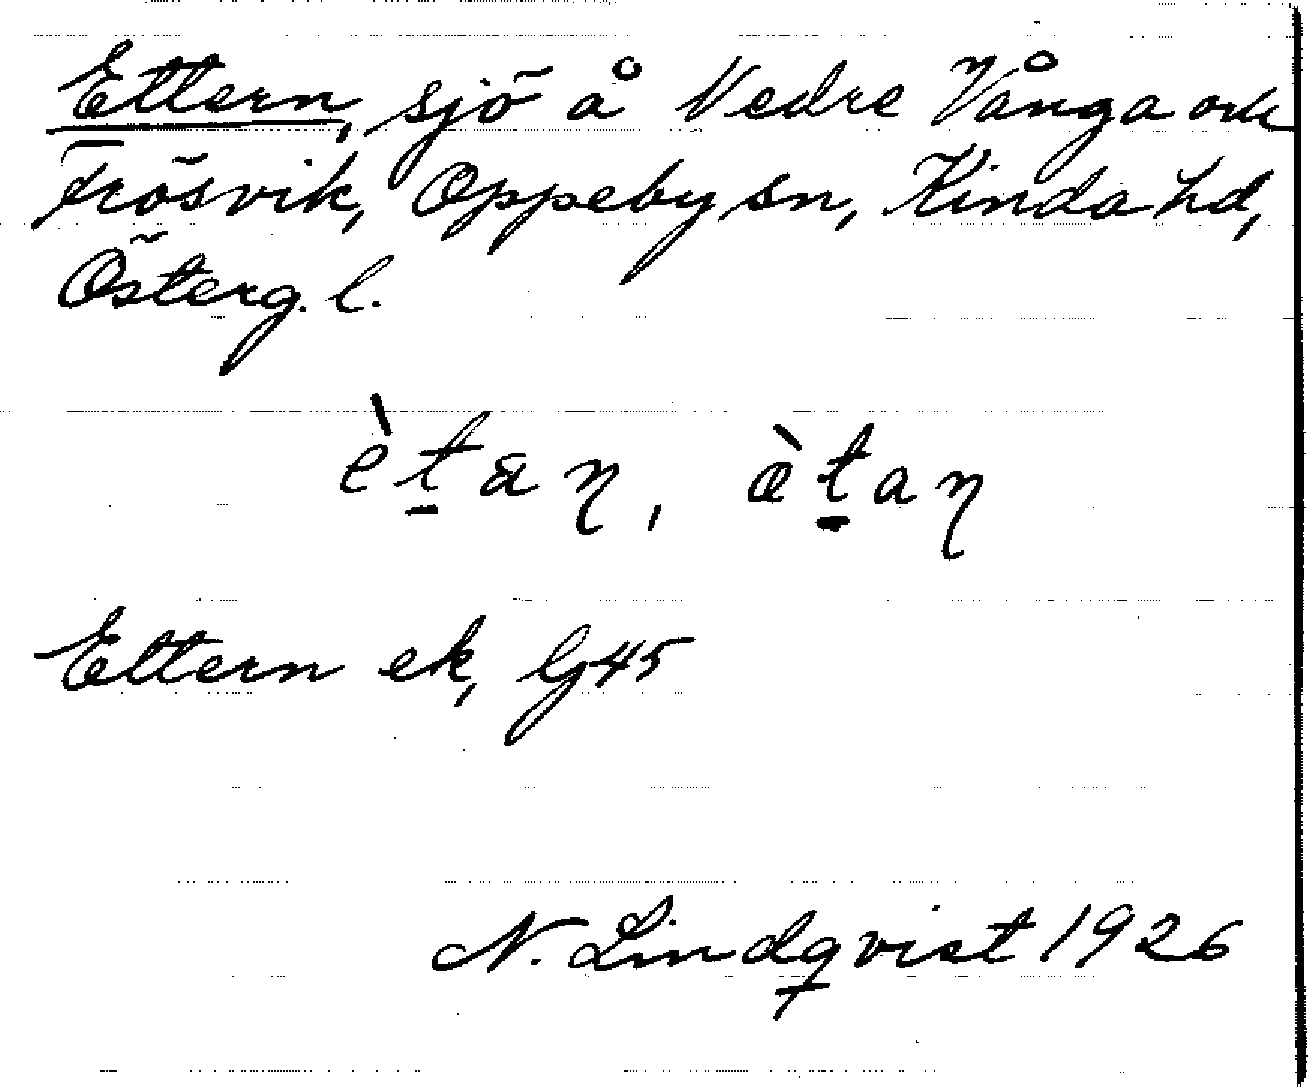 Ettern, sjö å Nedre Vånga och
Frösvik, Oppeby sn, Kinda hd,
Österg. l.
èt̲an, æ̀t̲an
Ettern ek, G45
N. Lindqvist 1926